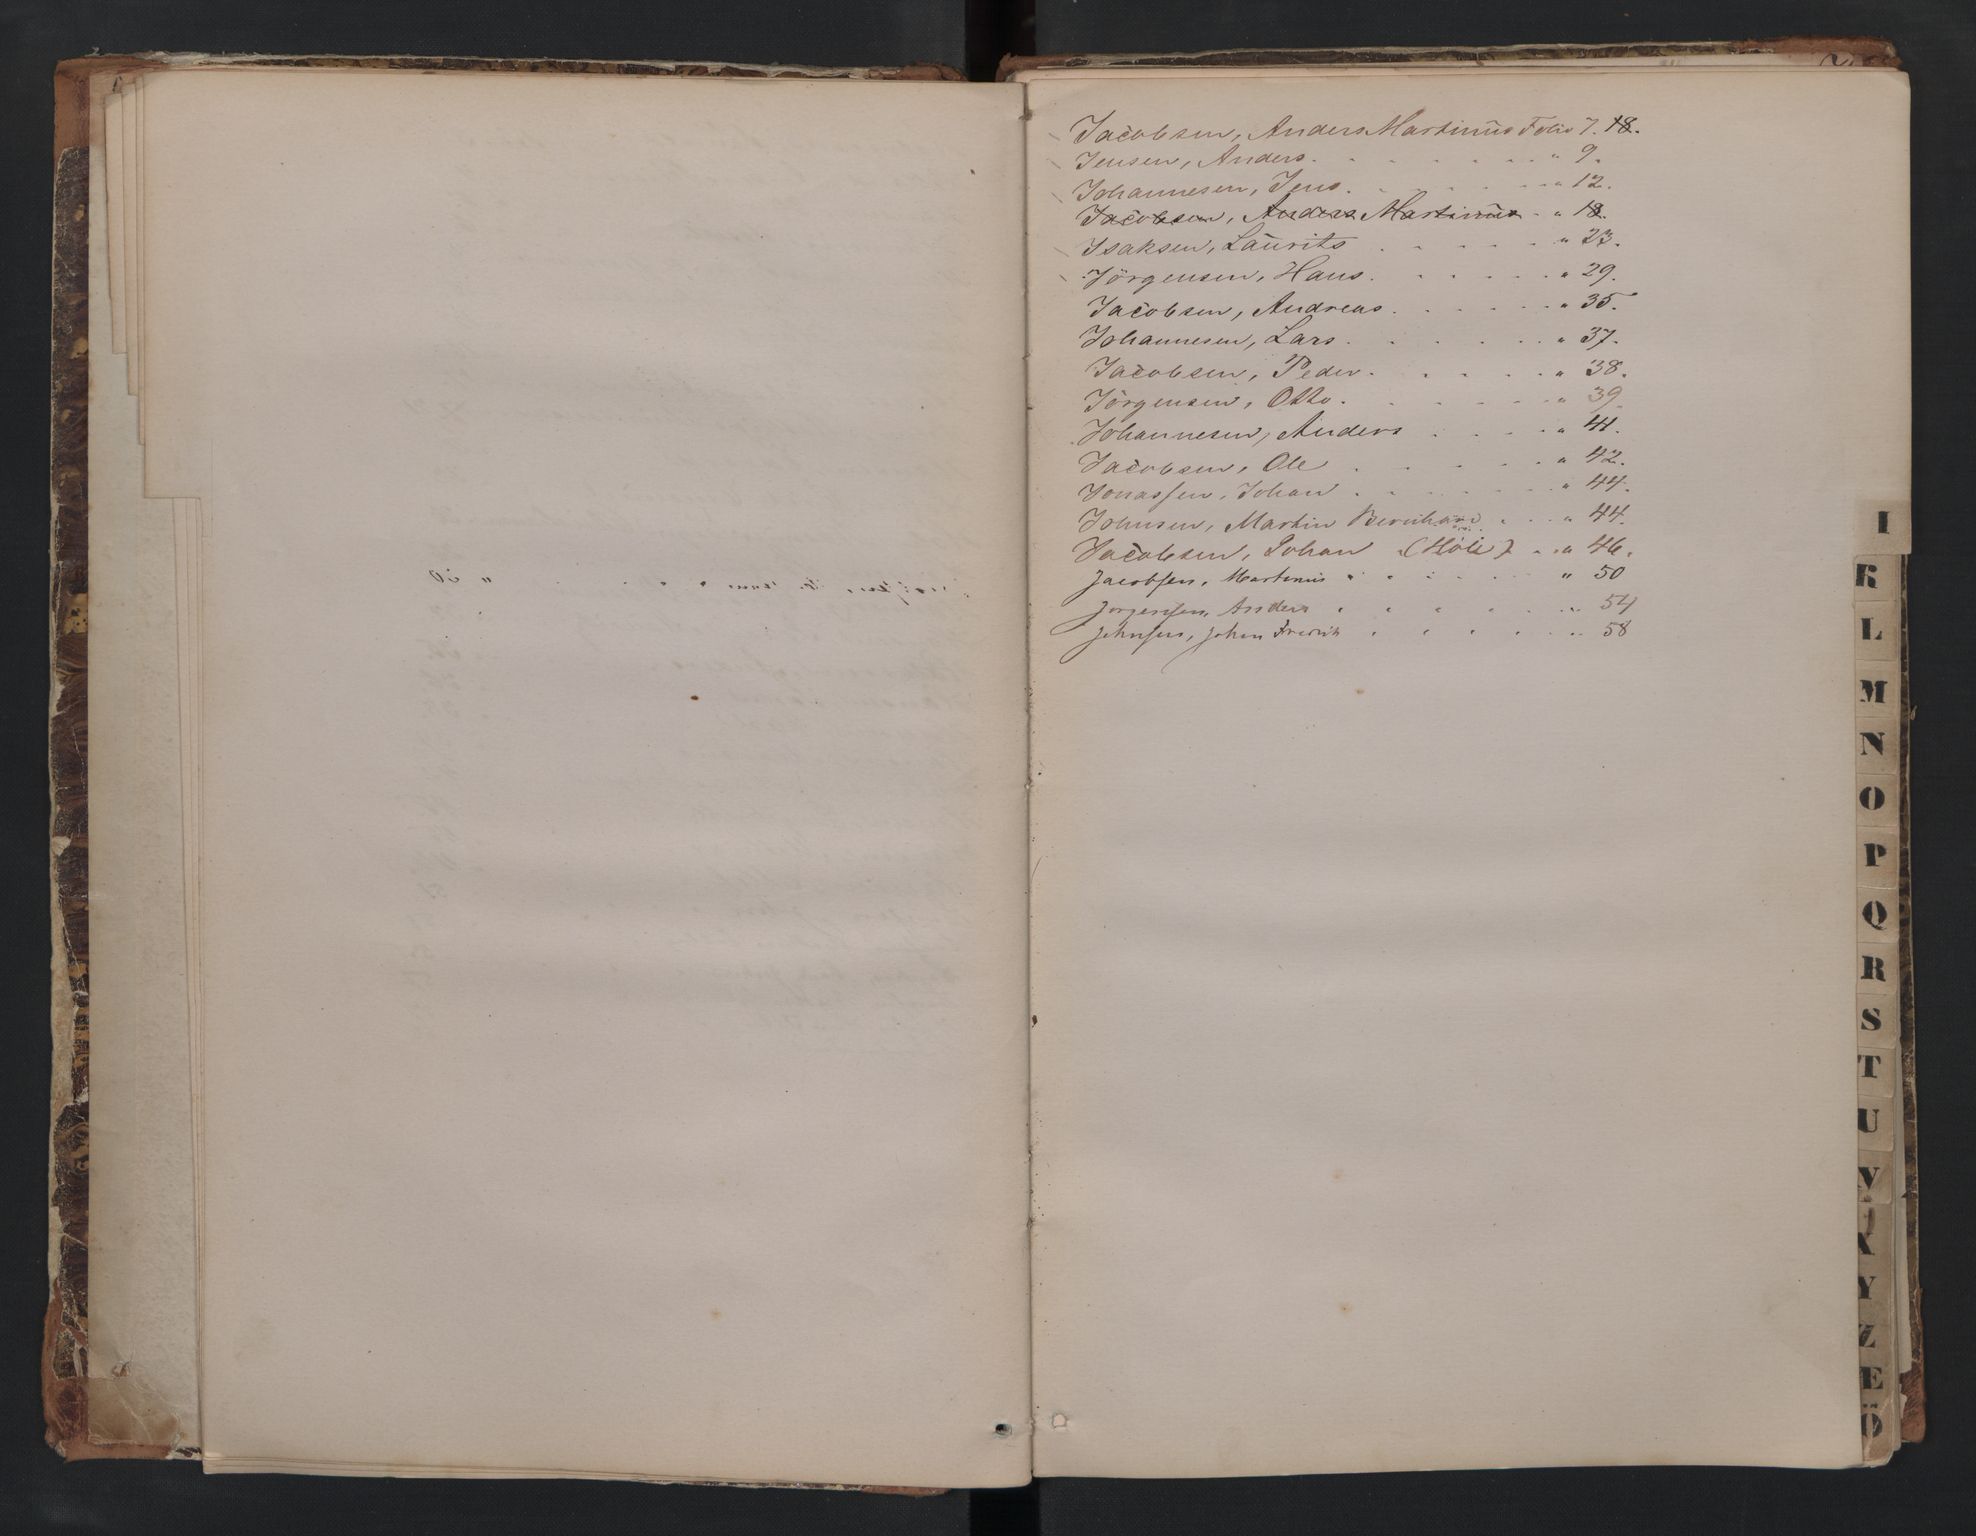 Jacobsen, Anders Martinus Folio 7. 18.
Jensen, Anders. . . . . . . " 9.
Johannesen, Jens. . . . . . " 12.
Jacobsen, Anders Martinus . " 18.
Isaksen, Laurits . . . . " 23.
Jörgensen, Hans. . . . . " 29.
Jacobsen, Andreas. . . . . " 35.
Johannesen, Lars. . . . . . " 37.
Jacobsen, Peder. . . . . " 38.
Jörgensen, Otto. . . . . . " 39
Johannesen, Anders . . . . " 41.
Jacobsen, Ole . . . . . " 42.
Jonassen, Johan . . . . . " 44.
Johnsen, Martin Bernhard . . " 44.
Jacobsen, Johan . . " 46.
Jacobsen, Martinus . . . . " 50
Jörgensen, Anders . . . . . " 54
Johnsen, Johan Fredrik . . . . " 58
" 50
I
K
L
M
N
O
P
Q
R
S
T
U
V
X
Y
Z
Æ
Ö